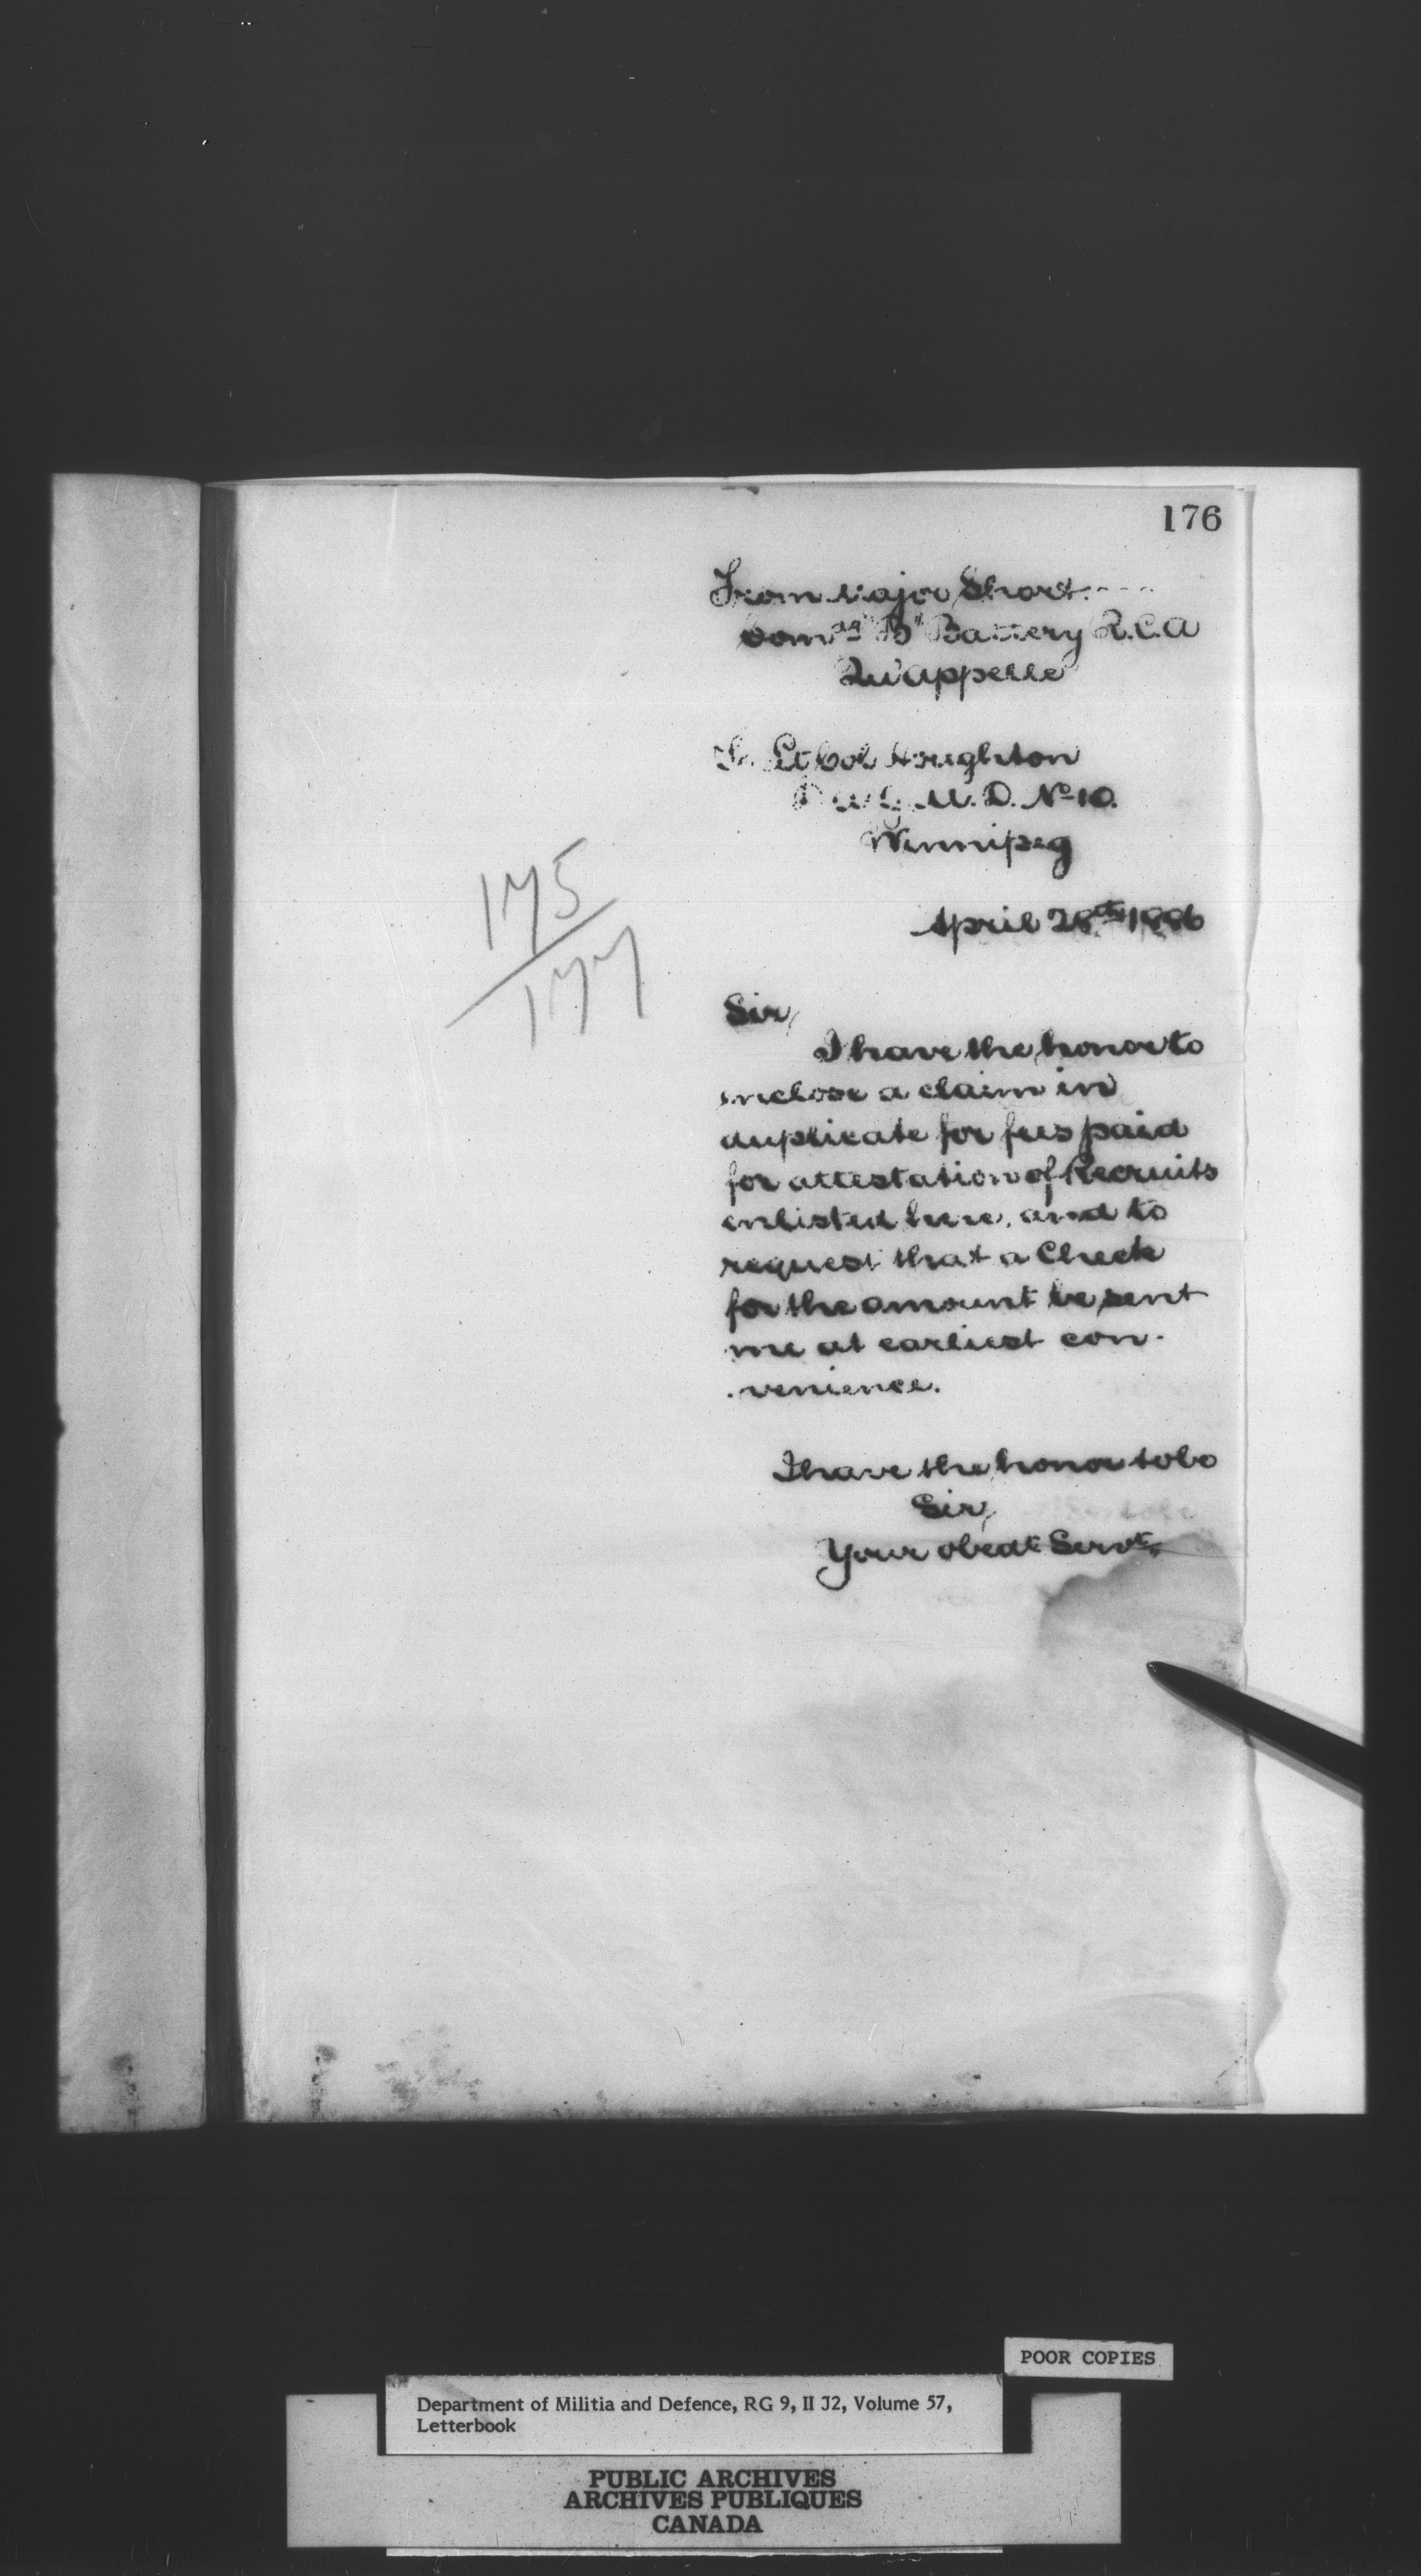 176
From Major Short
Comdg "B" Battery R.C.A
Qu'Appelle
To Lt Col Houghton
D A G M. D. No 10.
Winnipeg
175
177
April 28th 1886
Sir,
I have the honor to
enclose a claim in
duplicate for fees paid
for attestation of Recruits
enlisted here, and to
request that a Check
for the amount be sent
me at earliest con-
-venience.
I have the honor to be
Sir,
Your obedt Servt,
POOR COPIES
Department of Militia and Defence, RG 9, II J2, Volume 57,
Letterbook
PUBLIC ARCHIVES
ARCHIVES PUBLIQUES
CANADA